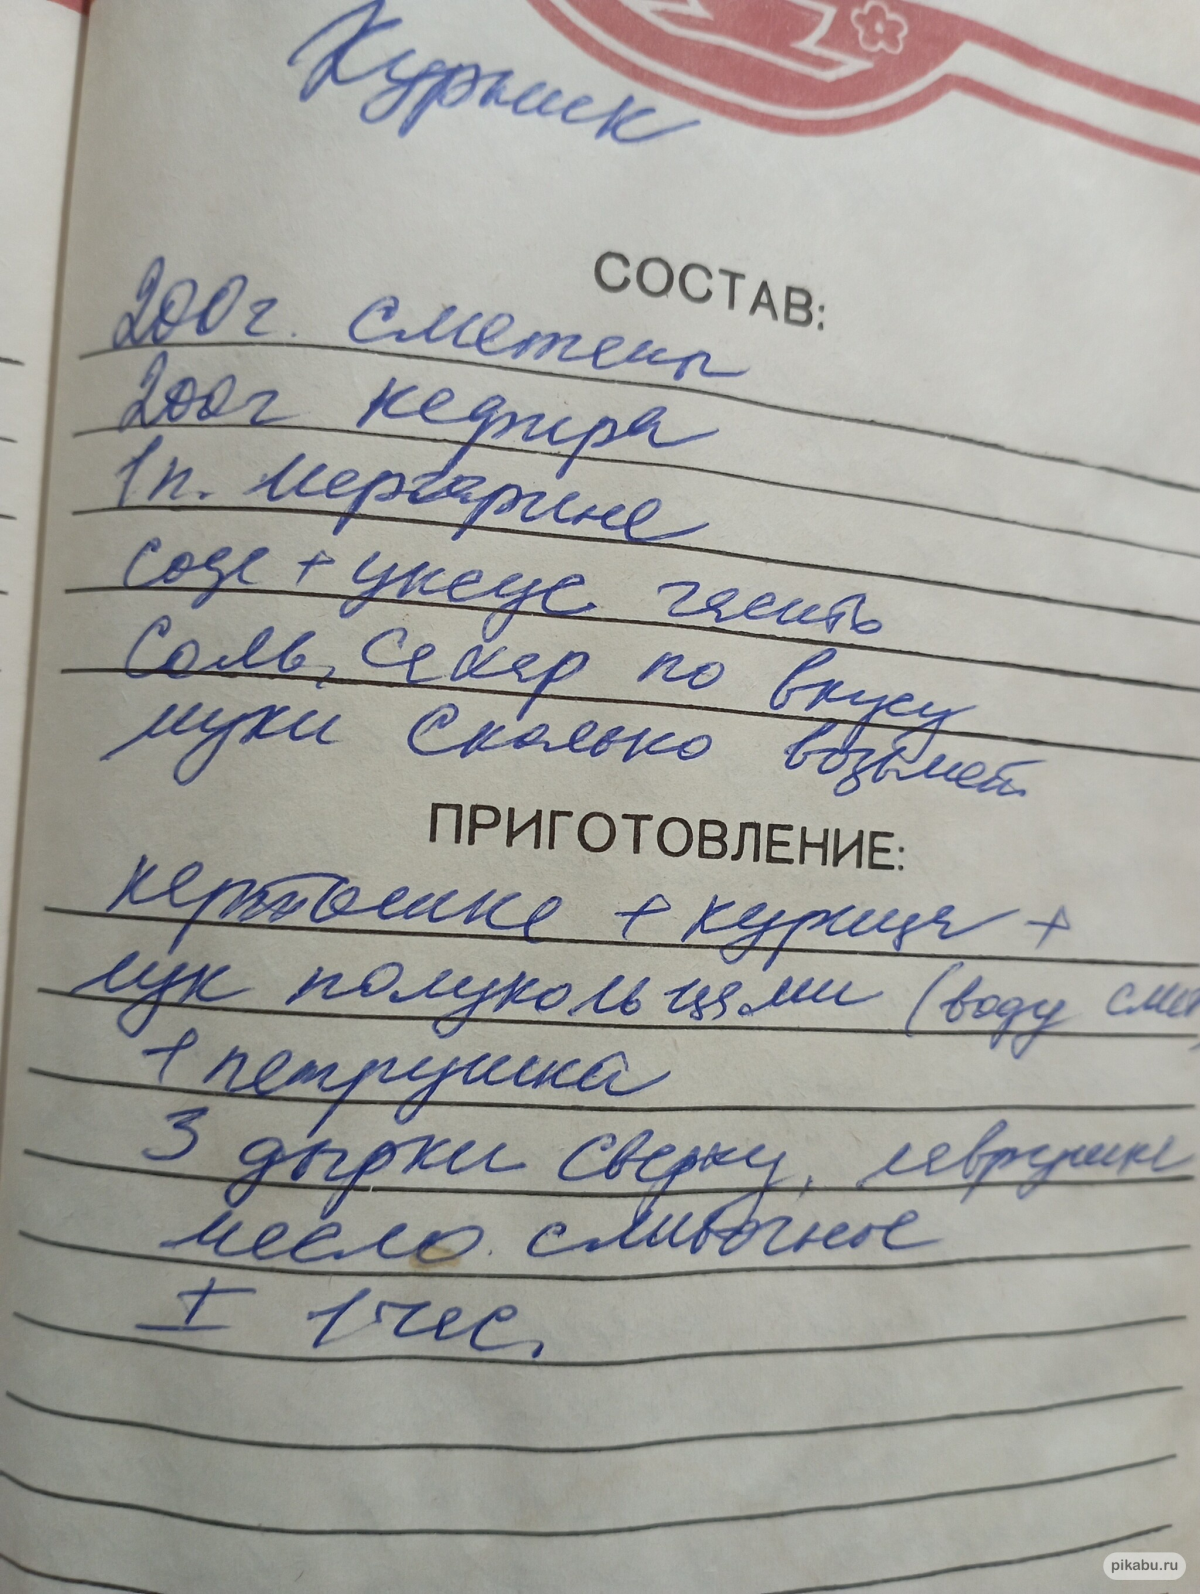 Курник
СОСТАВ:
200г. сметаны
200г кефира
1п. маргарина
сода + уксус гасить
Соль, Сахар по вкусу
муки сколько возьмёт
ПРИГОТОВЛЕНИЕ:
картошка + курица +
лук полукольцами (воду
+ петрушка
3 дырки сверху, лаврушка
масло сливочное
I 1 час.
pikabu.ru